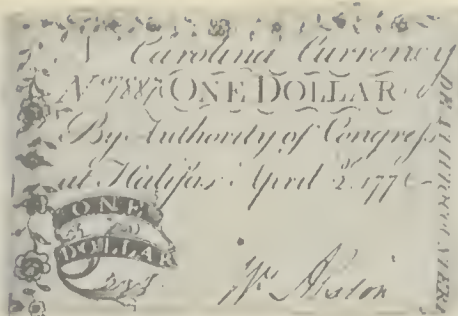 Carolina Currency
No 7887 ONE DOLLAR
By Authority of Congress
at Halifax April 2d. 1776
ONE
DOLLAR
Wm